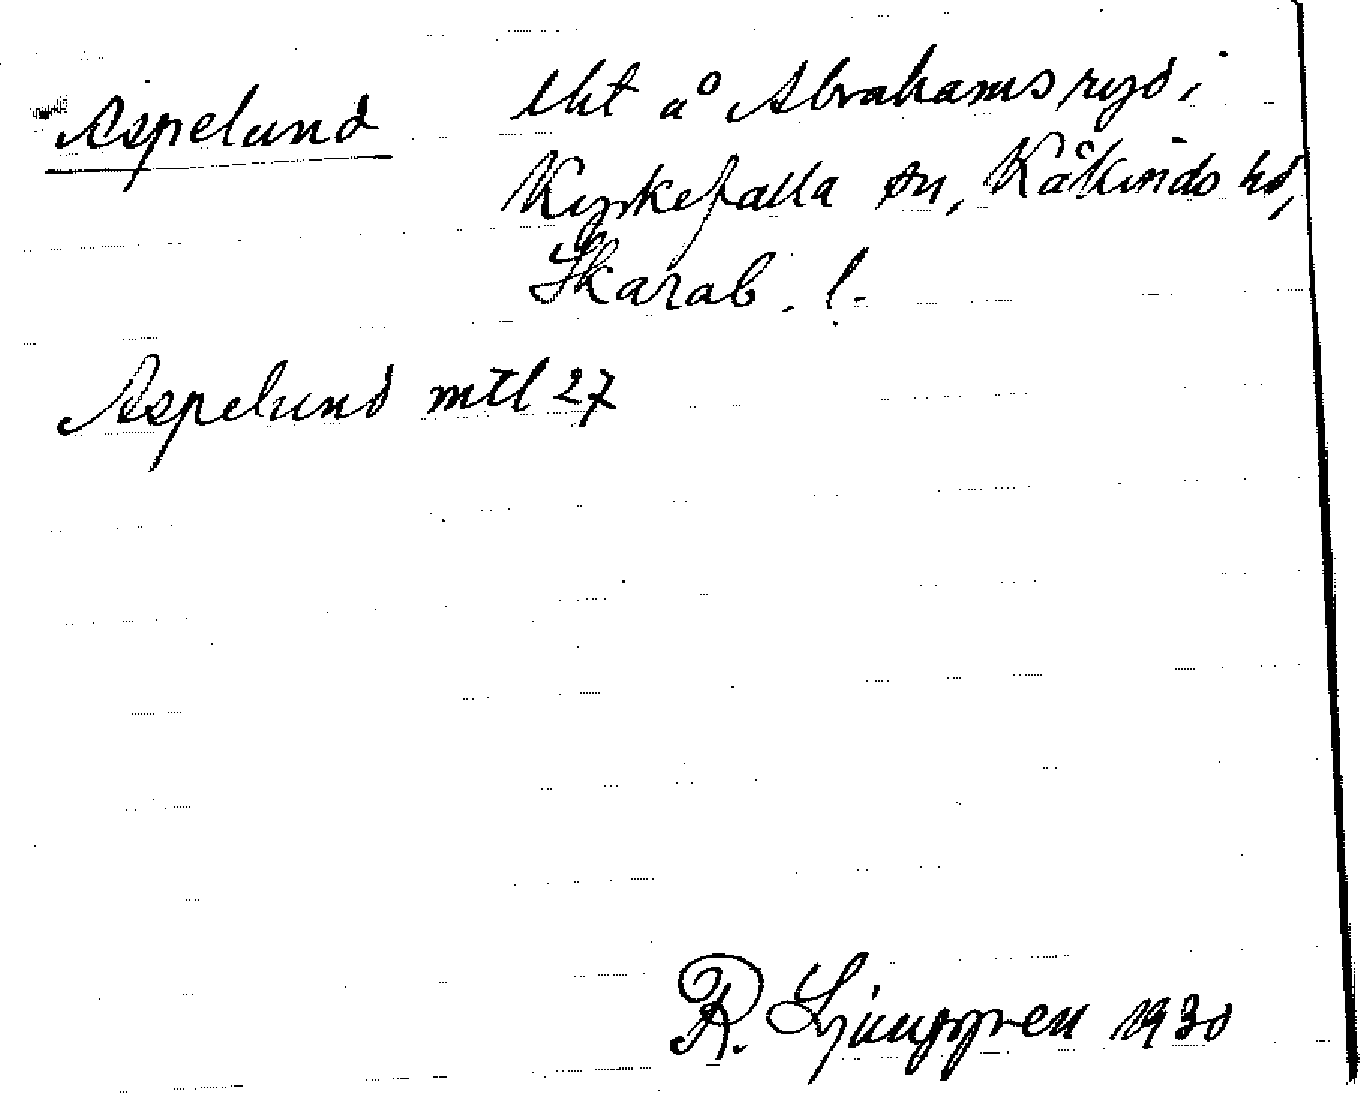 Aspelund lht å Abrahamsryd i
Kyrkefalla sn, Kåkinds hd,
Skarab. l.
Aspelund mtl 27
R. Ljunggren 1930